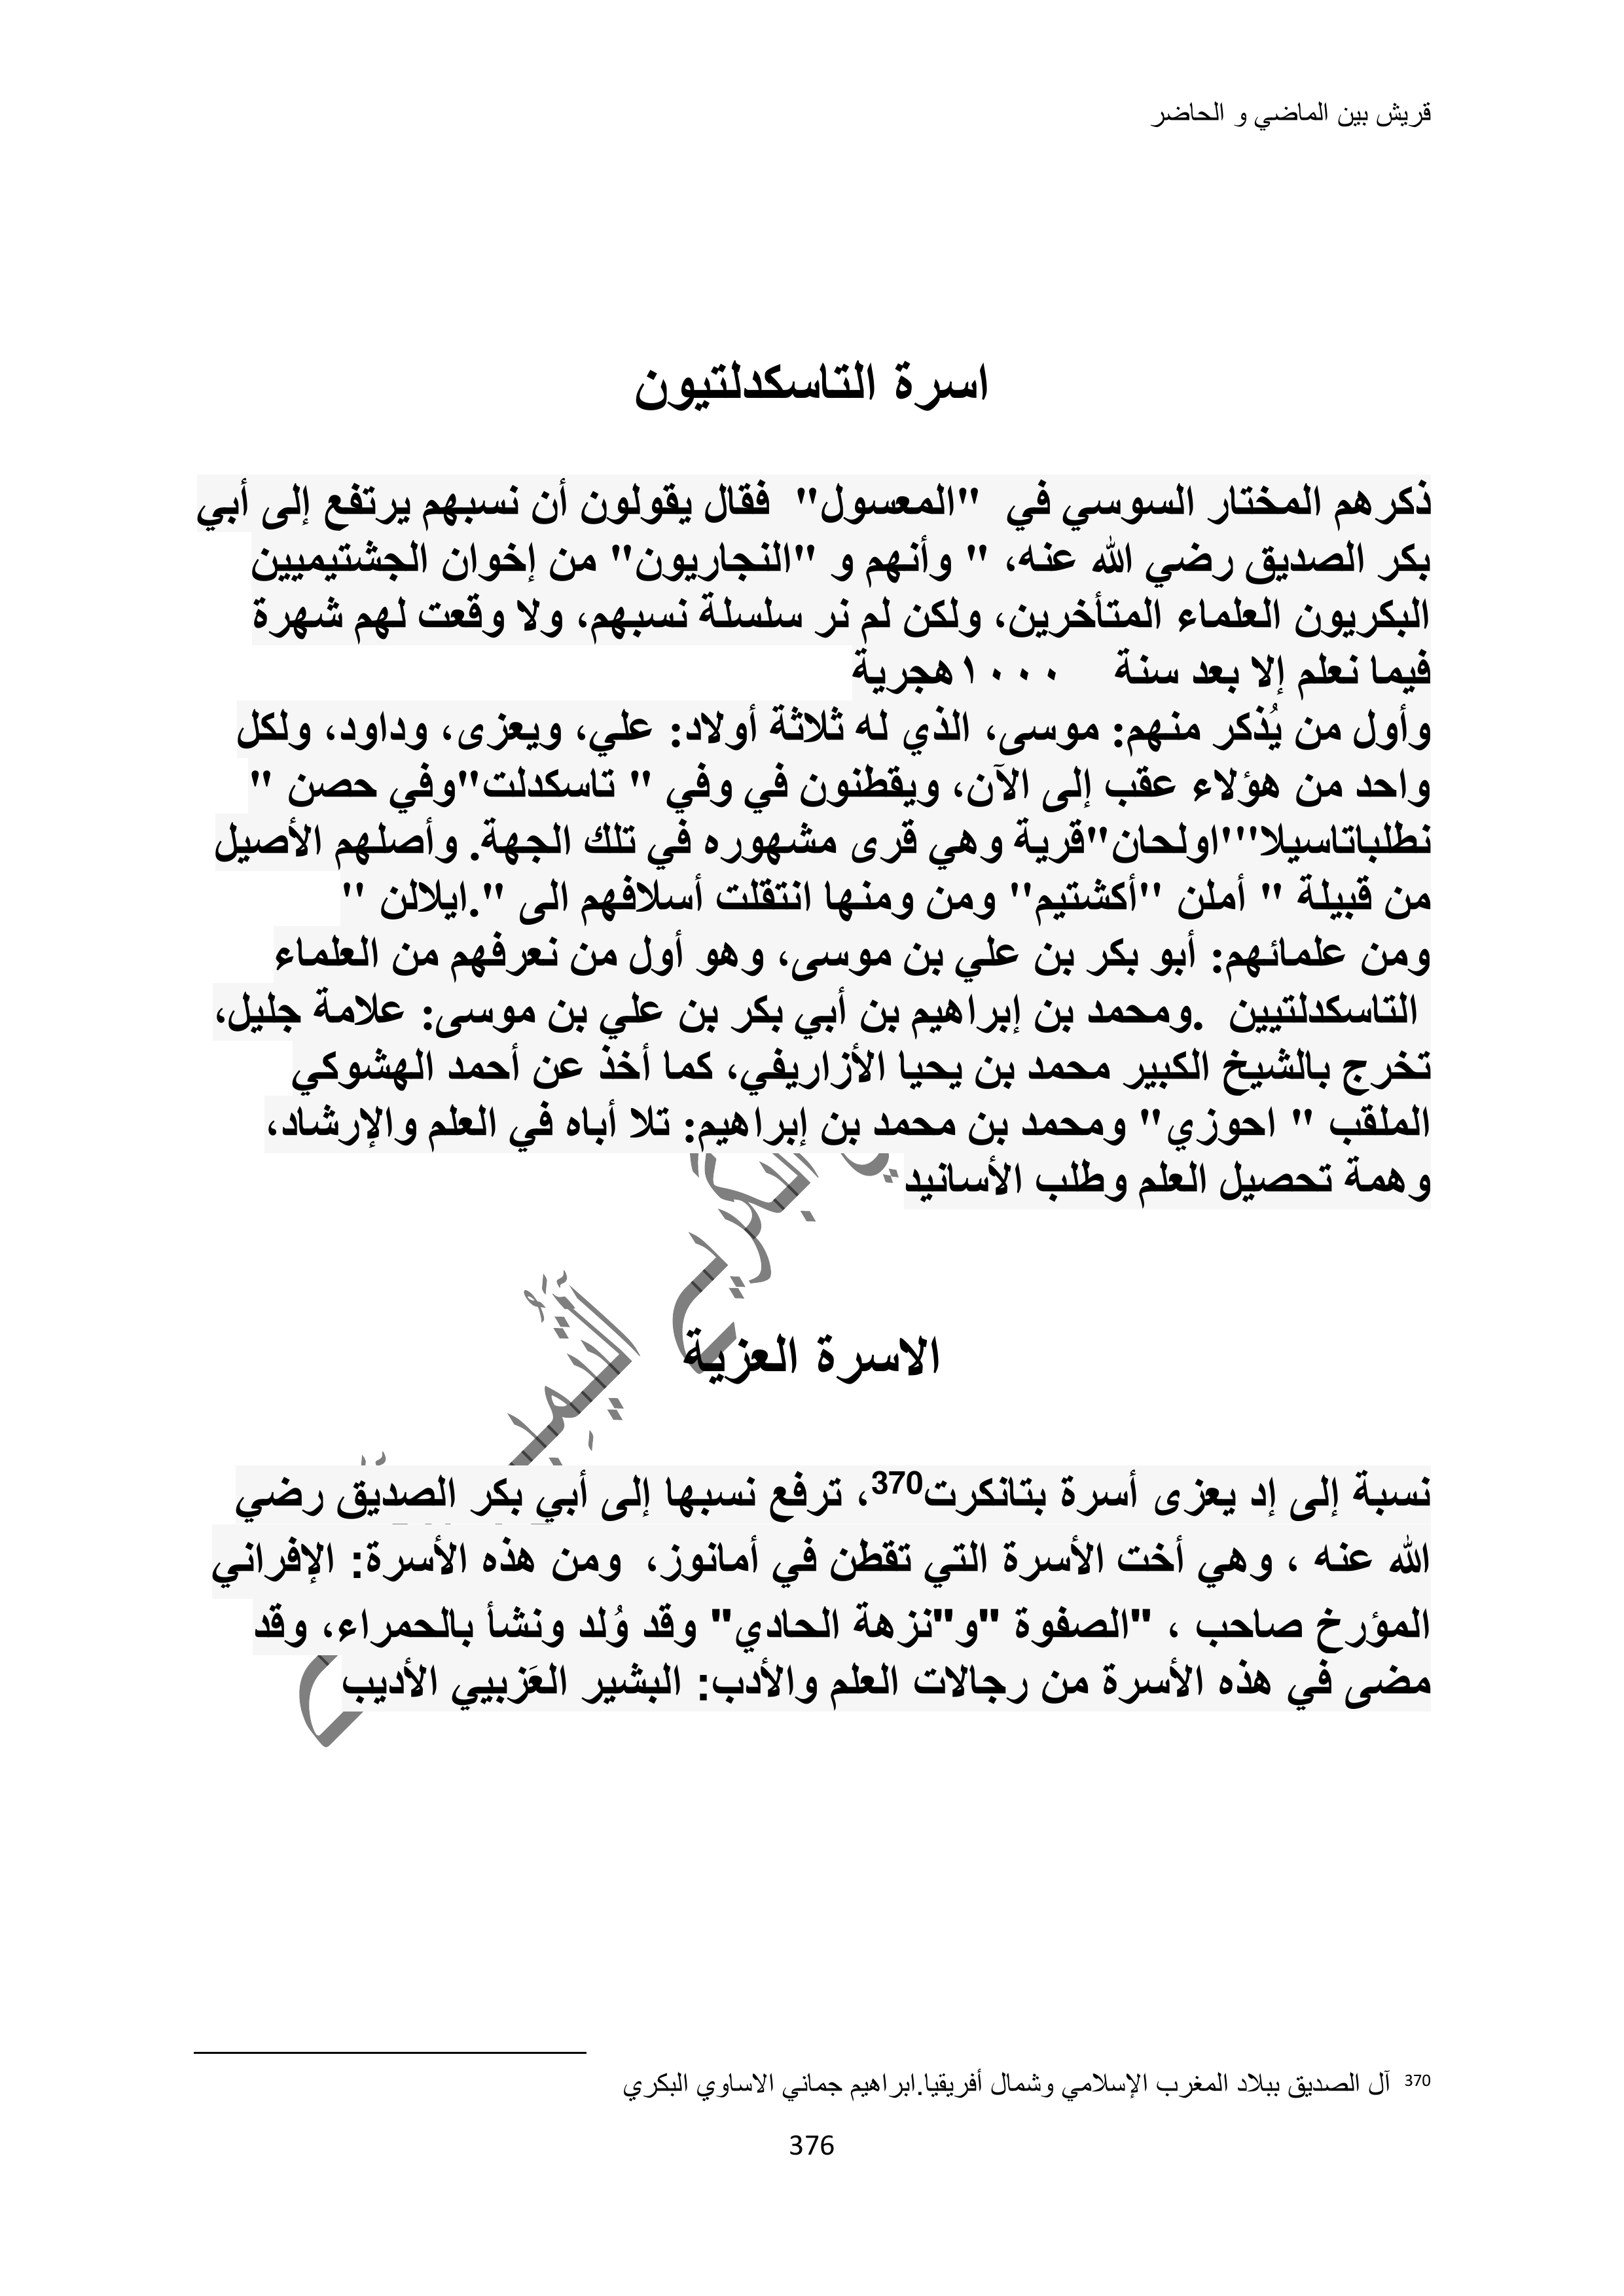 قريش بين الماضي و الحاضر
اسرة التاسكدلتيون
ذكرهم المختار السوسي في "المعسول" فقال يقولون أن نسبهم يرتفع إلى أبي
بكر الصديق رضي الله عنه، " وأنهم و "النجاريون" من إخوان الجشتيميين
البكريون العلماء المتأخرين، ولكن لم نر سلسلة نسبهم، ولا وقعت لهم شهرة
فيما نعلم إلا بعد سنة ١٠٠٠هجرية
وأول من يُذكر منهم: موسى، الذي له ثلاثة أولاد: علي، ويعزى، وداود، ولكل
واحد من هؤلاء عقب إلى الآن، ويقطنون في وفي " تاسكدلت"وفي حصن "
نطلباتاسيلا'"اولحان"قرية وهي قرى مشهوره في تلك الجهة. وأصلهم الأصيل
من قبيلة " أملن "أكشتيم" ومن ومنها انتقلت أسلافهم الى ".ايلالن "
ومن علمائهم: أبو بكر بن علي بن موسى، وهو أول من نعرفهم من العلماء
التاسكدلتيين .ومحمد بن إبراهيم بن أبي بكر بن علي بن موسى: علامة جليل،
تخرج بالشيخ الكبير محمد بن يحيا الأزاريفي، كما أخذ عن أحمد الهشوكي
الملقب " احوزي" ومحمد بن محمد بن إبراهيم: تلا أباه في العلم والإرشاد،
وهمة تحصيل العلم وطلب الأسانيد
الاسرة العزية
نسبة إلى إد يعزى أسرة بتانكرت370، ترفع نسبها إلى أبي بكر الصديق رضي
الله عنه ، وهي أخت الأسرة التي تقطن في أمانوز، ومن هذه الأسرة: الإفراني
المؤرخ صاحب ، "الصفوة "و"نزهة الحادي" وقد وُلد ونشأ بالحمراء، وقد
مضى في هذه الأسرة من رجالات العلم والأدب: البشير العَزبيي الأديب
370 آل الصديق ببلاد المغرب الإسلامي وشمال أفريقيا.ابراهيم جماني الاساوي البكري
376